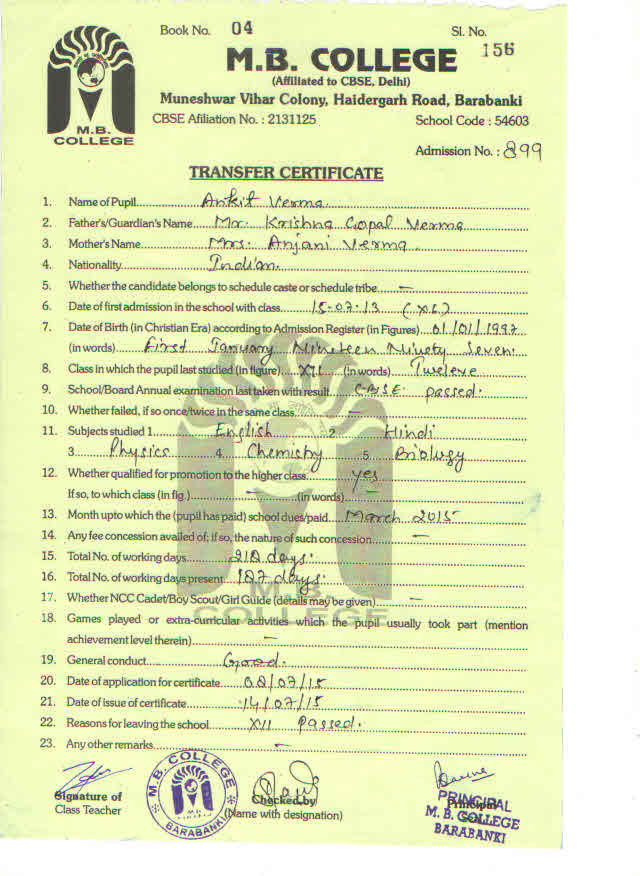 Book No. 04 Sl. No.
156
M.B. COLLEGE
(Affiliated to CBSE, Delhi)
Muneshwar Vihar Colony, Haidergarh Road, Barabanki
CBSE Afiliation No. : 2131125 School Code : 54603
M.B.
COLLEGE
Admission No. : 899
TRANSFER CERTIFICATE
1. Name of Pupil Ankit Verma
2. Father's/Guardian's Name Mr. Krishna Gopal Verma
3. Mother's Name Mrs. Anjani Verma
4. Nationality Indian
5. Whether the candidate belongs to schedule caste or schedule tribe —
6. Date of first admission in the school with class 15-07-13 (XI)
7. Date of Birth (in Christian Era) according to Admission Register (in Figures) 01/01/1997
(in words) First January Nineteen Ninety Seven
8. Class in which the pupil last studied (in figure) XII (in words) Tweleve
9. School/Board Annual examination last taken with result CBSE passed.
10. Whether failed, if so once/twice in the same class —
11. Subjects studied 1 English 2 Hindi
3 Physics 4. Chemistry 5 Biology
12. Whether qualified for promotion to the higher class yes
If so, to which class (in fig.) — (in words) —
13. Month upto which the (pupil has paid) school dues/paid March 2015
14. Any fee concession availed of; if so, the nature of such concession —
15. Total No. of working days 210 days.
16. Total No. of working days present 187 days.
17. Whether NCC Cadet/Boy Scout/Girl Guide (details may be given) —
18. Games played or extra-curricular activities which the pupil usually took part (mention
achievement level therein) —
19. General conduct Good.
20. Date of application for certificate 08/07/15
21. Date of issue of certificate 14/07/15
22. Reasons for leaving the school XII Passed.
23. Any other remarks —
M.B.
COLLEGE
Signature of
Class Teacher
M.B. COLLEGE
BARABANKI
Checked by
(Name with designation)
Principal
PRINCIPAL
M. B. COLLEGE
BARABANKI